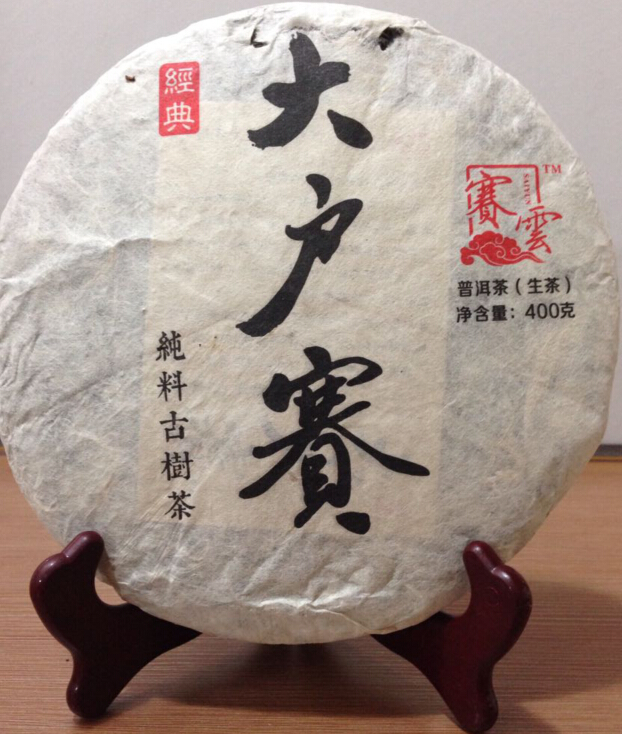 經典
大户賽
賽雲
SAIYUN
TM
普洱茶（生茶）
净含量：400克
純料古樹茶